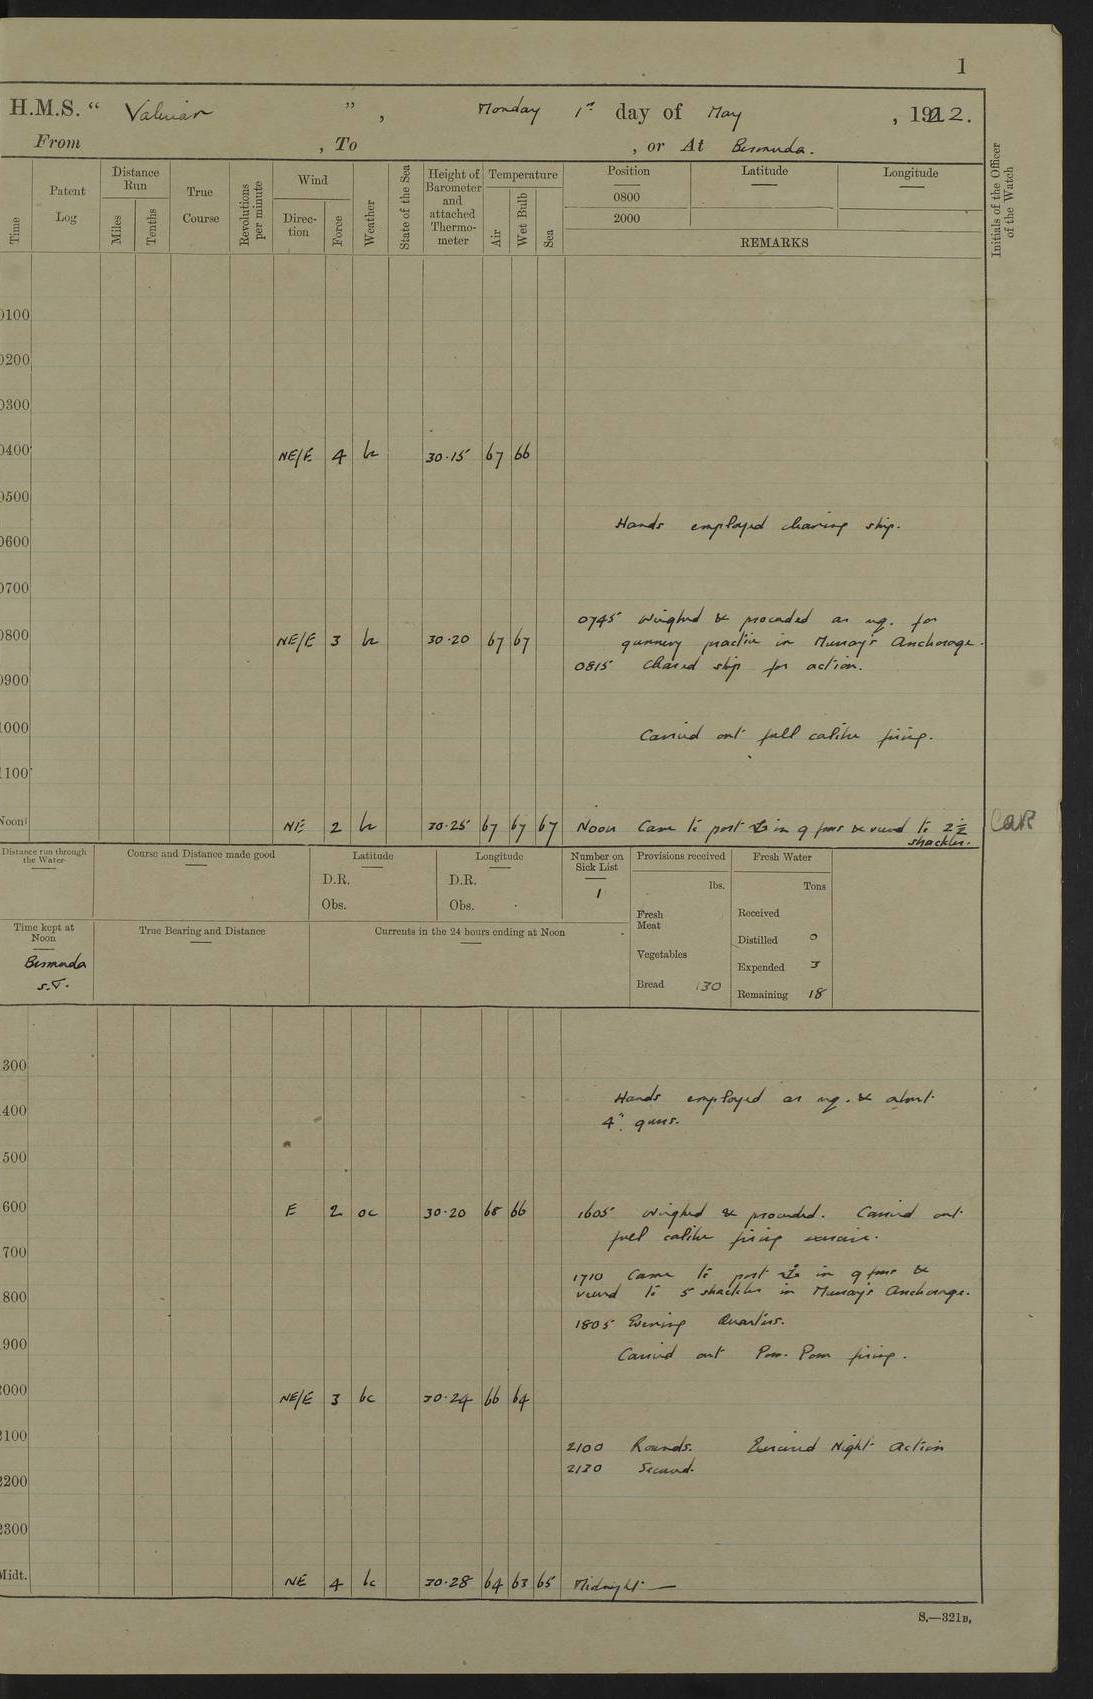 1
H.M.S. " Valerian ", Monday 1st day of May, 1922.
From , To , or At Bermuda.
Time
Patent Log
Distance Run
Miles
Tenths
True Course
Revolutions per minute
Wind
Direction
Force
Weather
State of the Sea
Height of Barometer and attached Thermometer
Temperature
Air
Wet Bulb
Sea
Position
0800
2000
Latitude
Longitude
REMARKS
Initials of the Officer of the Watch
0100
0200
0300
0400 NE/E 4 b 30·15 67 66
0500
Hands employed cleaning ship.
0600
0700
0745 Weighed & proceeded as req. for
0800 NE/E 3 b 30·20 67 67 gunnery practice in Murray's Anchorage.
0815 Cleared ship for action.
0900
1000 Carried out full calibre firing.
1100
Noon NE 2 b 30·25 67 67 67 Noon Came to port ⚓ in 9 fms & veered to 2½
shackles.
Distance run through the Water
Course and Distance made good
Latitude
D.R.
Obs.
Longitude
D.R.
Obs.
Number on Sick List
1
Provisions received
lbs.
Fresh Meat
Vegetables
Bread 130
Fresh Water
Tons
Received
Distilled 0
Expended 3
Remaining 18
Time kept at Noon
Bermuda
S.T.
True Bearing and Distance
Currents in the 24 hours ending at Noon
1300
1400 Hands employed as req. & about
4" guns.
1500
1600 E 2 oc 30·20 68 66 1605 Weighed & proceeded. Carried out
full calibre firing exercise.
1700
1710 Came to port ⚓ in 9 fms &
1800 veered to 5 shackles in Murray's Anchorage.
1805 Evening Quarters.
1900 Carried out Pom-Pom firing.
2000 NE/E 3 bc 30·24 66 64
2100 2100 Rounds. Exercised Night Action
2130 Secured.
2200
2300
Midt. NE 4 bc 30·28 64 63 65 Midnight —
S.—321B.